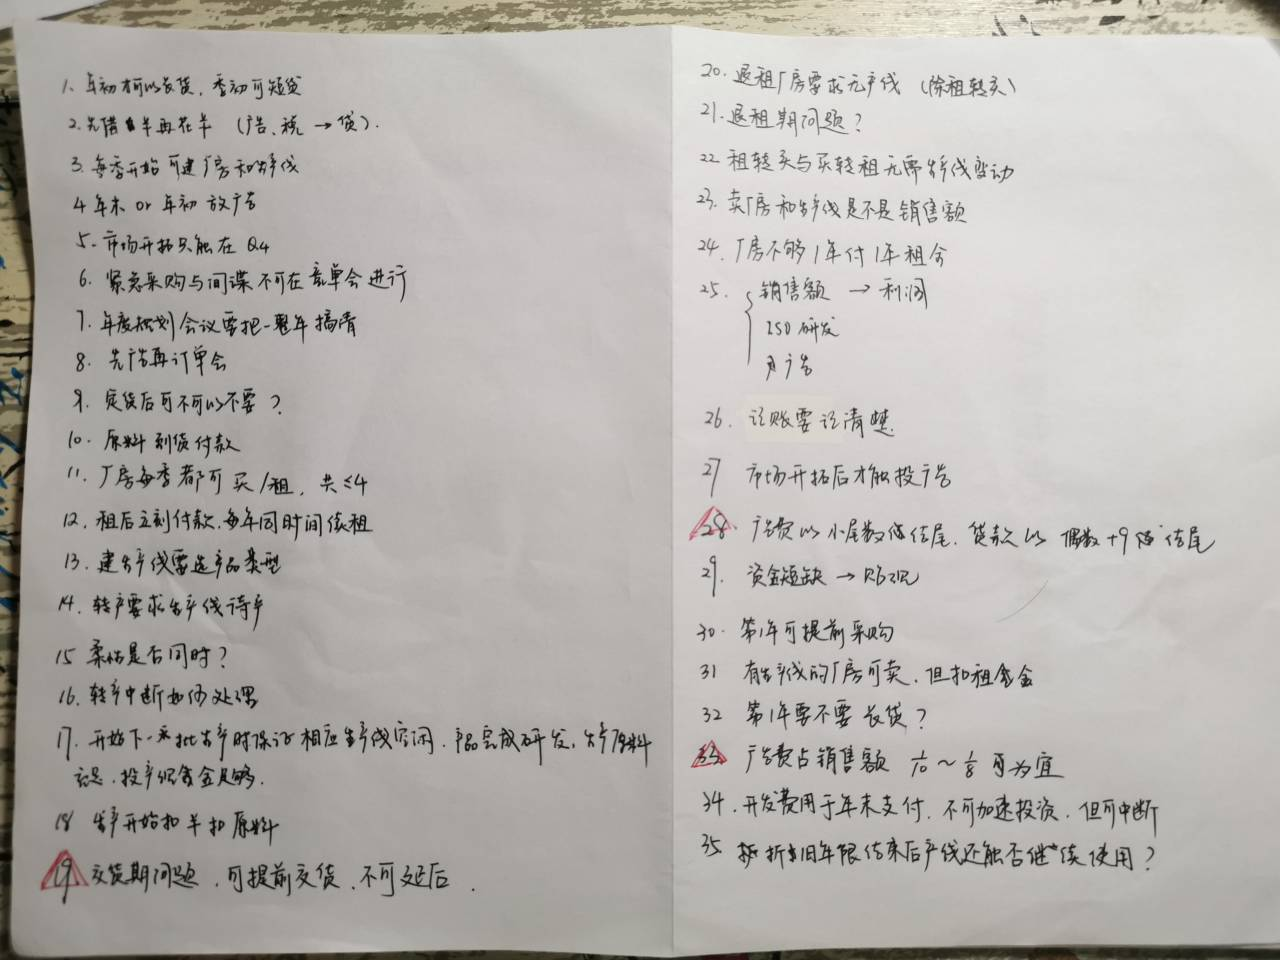 1. 年初才可以长贷，季初可短贷
2. 先借￥再花￥（广告、税→贷）.
3. 每季开始可建厂房和生产线
4 年末 or 年初 放广告
5. 市场开拓只能在Q4
6. 紧急采购与间谍不可在竞单会进行
7. 年度规划会议要把一整年搞清
8. 先广告再订单会
9. 定货后可不可以不要？
10. 原料到货付款
11. 厂房每季都可买/租，共≤4
12. 租后立刻付款，每年同时间续租
13. 建生产线要选产品类型
14. 转产要求生产线待产
15 柔性是否同时？
16. 转产中断如何处理
17. 开始下一批生产时保证相应生产线空闲，产品完成研发，生产原料
充足，投产假资金足够.
18 生产开始扣￥扣原料
19 交货期问题，可提前交货，不可延后.
20. 退租厂房要求无产线（除租转买）
21. 退租期问题？
22 租转买与买转租无需生产线变动
23. 卖厂房和生产线是不是销售额
24. 厂房不够1年付1年租金
25. 销售额→利润
ISO研发
广告
26. 记账要记清楚.
27 市场开拓后才能投广告
28. 广告费以小尾数值结尾，贷款以偶数+9值结尾
29. 资金短缺→贴现
30. 第1年可提前采购
31 有生产线的厂房可卖，但扣租金
32 第1年要不要长贷？
33 广告费占销售额 1/10～1/8 可为宜
34. 开发费用于年末支付，不可加速投资，但可中断
35. 折旧年限结束后产线还能否继续使用？